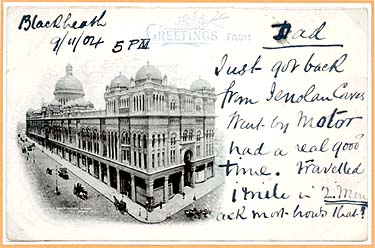 Blackheath
9/11/04 5 PM
GREETINGS FROM
Dad
Just got back
from Jenolan Caves
Went by Motor
had a real good
time. Travelled
1 mile in 2 Min
ask mort hows that?